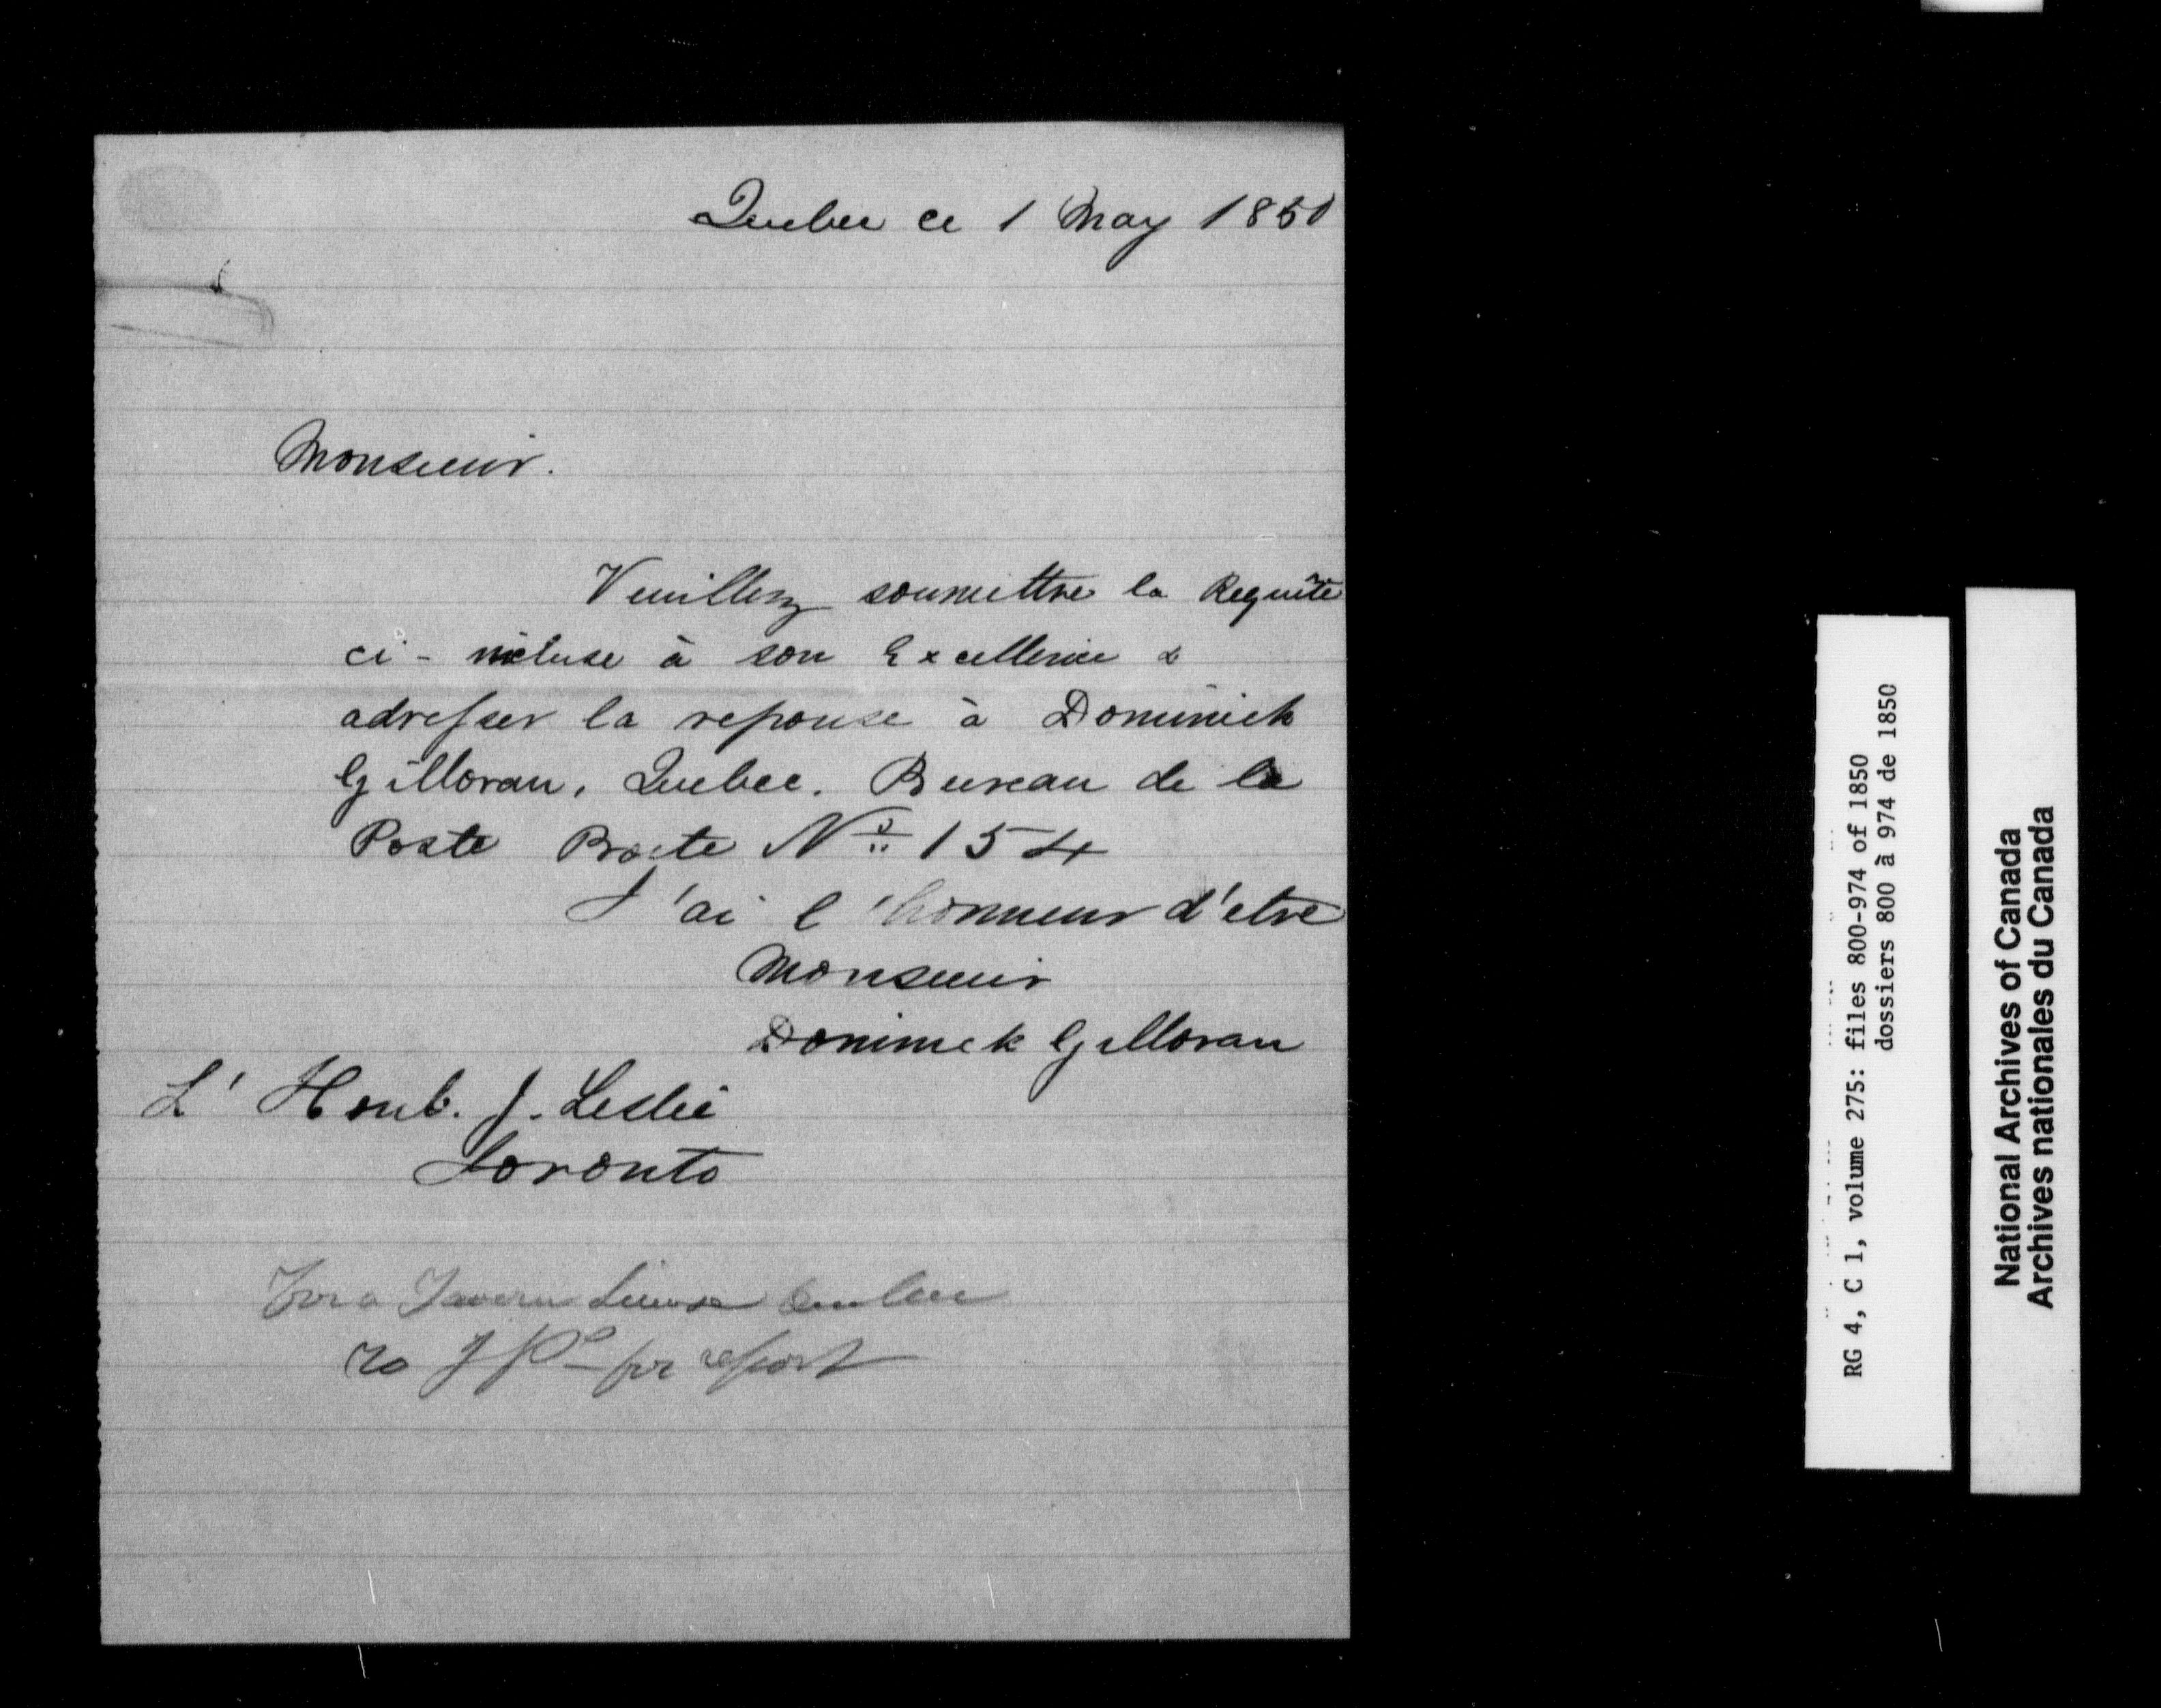 Quebec ce 1 May 1850
Monsieur.
Veuillez soumettre la Requête
ci-incluse à son Excellence &
adresser la reponse à Dominick
Gilloran, Quebec. Bureau de la
Poste Boite No. 154
J'ai l'honneur d'etre
Monsieur
Dominick Gilloran
L'Honb. J. Leslie
Toronto
For a Tavern License Quebec
to J P for report
RG 4, C 1, volume 275: files 800-974 of 1850
dossiers 800 à 974 de 1850
National Archives of Canada
Archives nationales du Canada